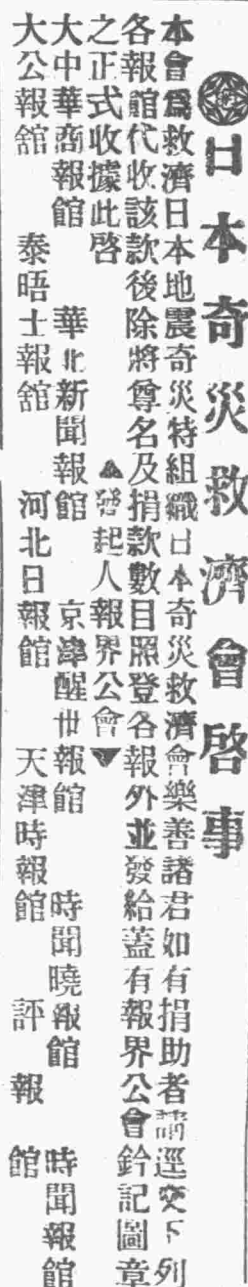 日本奇災救濟會啓事
本會爲救濟日本地震奇災特組織日本奇災救濟會樂善諸君如有捐助者請逕交下列
各報館代收該款後除將尊名及捐款數目照登各報外並發給蓋有報界公會鈐記圖章
之正式收據此啓 ▲發起人報界公會▼
大中華商報館 華北新聞報館 京津醒世報館 時聞曉報館 時聞報館
大公報舘 泰晤士報舘 河北日報館 天津時報館 評報館